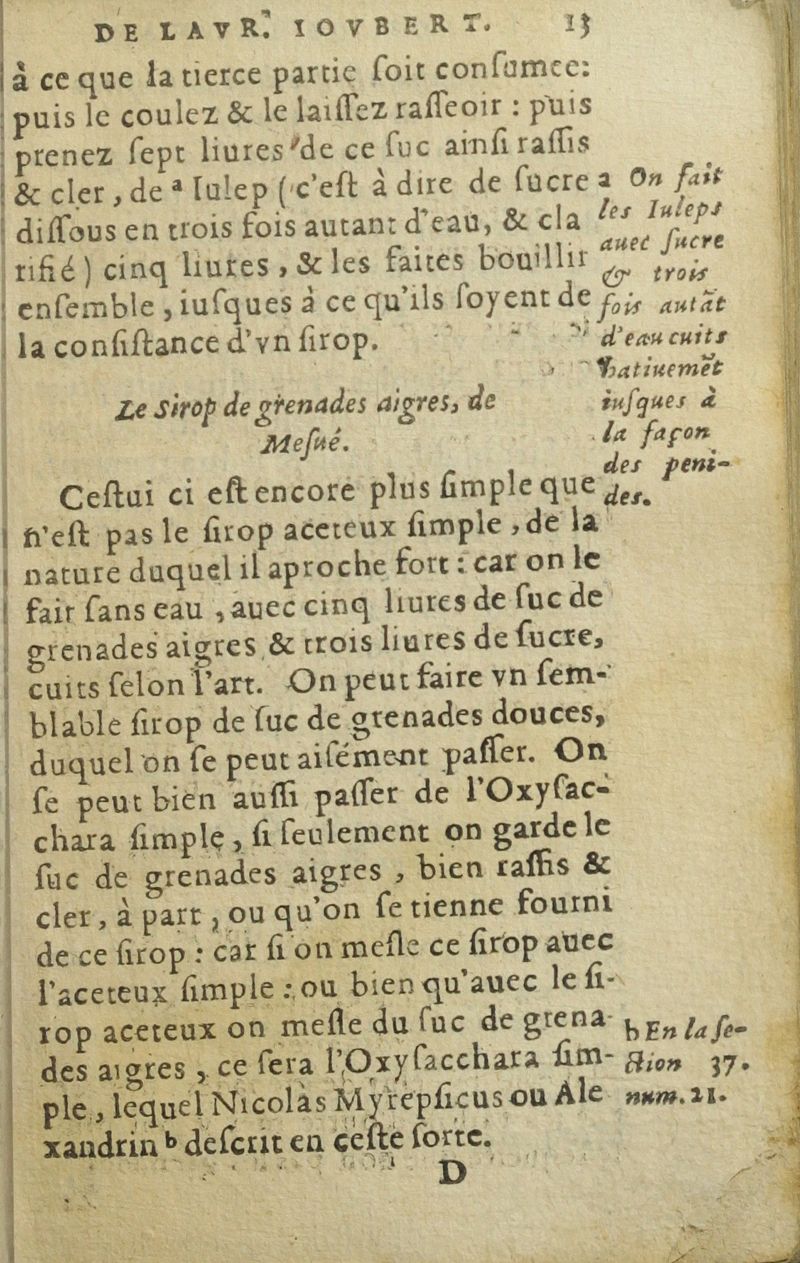 DE LAVR. IOVBERT. 13
à ce que la tierce partie ſoit conſumee:
puis le coulez & le laiſſez raſſeoir : puis
prenez ſept liures de ce ſuc ainſi raſſis
& cler, de ª Iulep (c'eſt à dire de ſucre
diſſous en trois fois autant d'eau, & cla
rifié) cinq liures, & les faites bouillir
enſemble, iuſques à ce qu'ils ſoyent de
la conſiſtance d'vn ſirop.
a On fait
les Iuleps
auec ſucre
& trois
fois autāt
d'eau cuits
hatiuemēt
iuſques à
la façon
des peni-
des.
Le Sirop de grenades aigres, de
Meſué.
Ceſtui ci eſt encore plus ſimple que
n'eſt pas le ſirop aceteux ſimple, de la
nature duquel il aproche fort : car on le
fair ſans eau, auec cinq liures de ſuc de
grenades aigres & trois liures de ſucre,
cuits ſelon l'art. On peut faire vn ſem-
blable ſirop de ſuc de grenades douces,
duquel on ſe peut aiſément paſſer. On
ſe peut bien auſſi paſſer de l'Oxyſac-
chara ſimple, ſi ſeulement on garde le
ſuc de grenades aigres, bien raſſis &
cler, à part, ou qu'on ſe tienne fourni
de ce ſirop : car ſi on meſle ce ſirop auec
l'aceteux ſimple : ou bien qu'auec le ſi-
rop aceteux on meſle du ſuc de grena
des aigres, ce ſera l'Oxyſacchara ſim-
ple, lequel Nicolas Myrepſicus ou Ale
xandrin ᵇ deſcrit en ceſte ſorte.
b En la ſe-
ction 37.
num. 21.
D